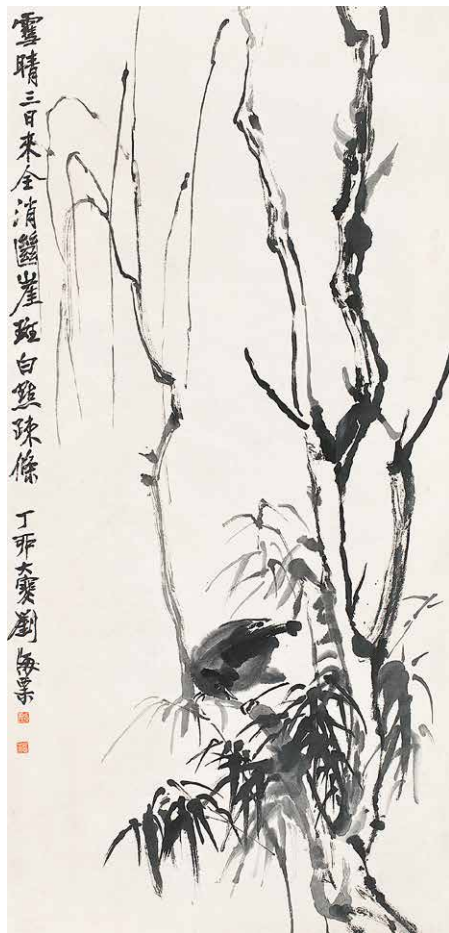 雪晴三日未全消崖斑白點疎條
丁卯大寒劉海粟